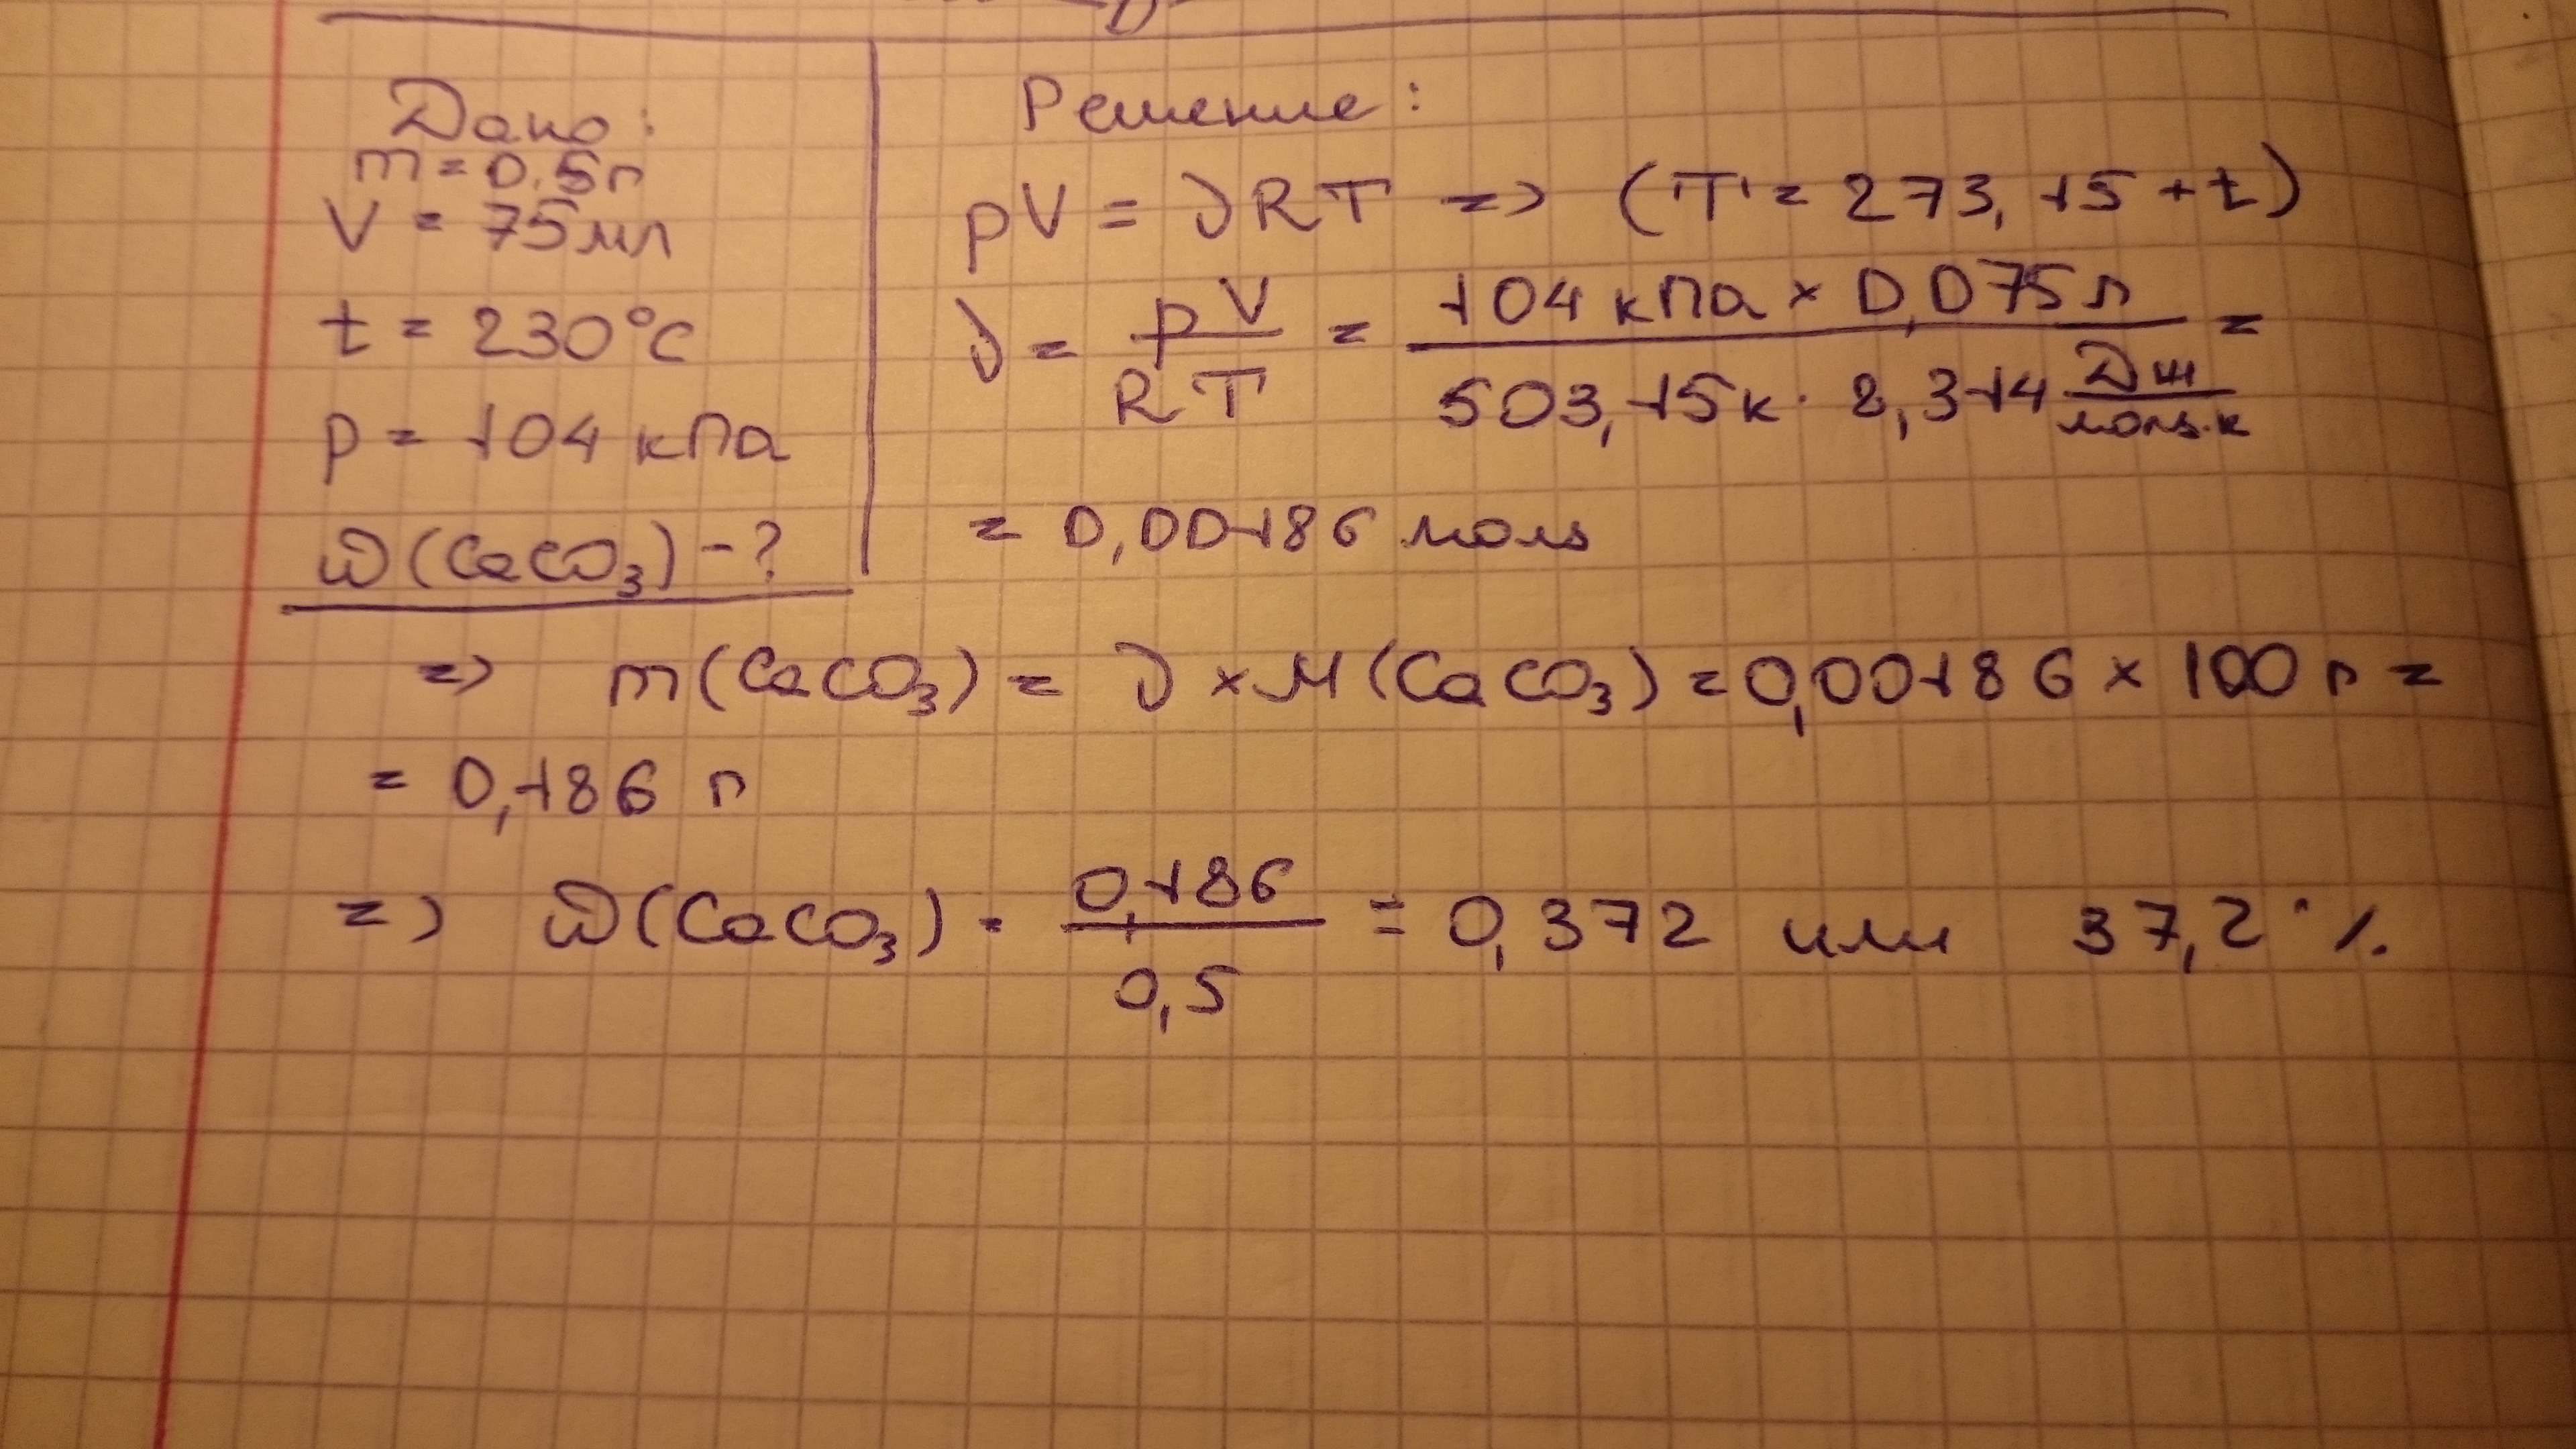 Дано:
m = 0,5 г
V = 75 мл
t = 230°C
p = 104 кПа
ω(CaCO₃) - ?
Решение:
pV = νRT => (T = 273,15 + t)
ν = pV / RT = 104 кПа × 0,075 л / 503,15 К · 8,314 Дж / моль·К =
= 0,00186 моль
=> m(CaCO₃) = ν × M(CaCO₃) = 0,00186 × 100 г =
= 0,186 г
=> ω(CaCO₃) = 0,186 / 0,5 = 0,372 или 37,2 %